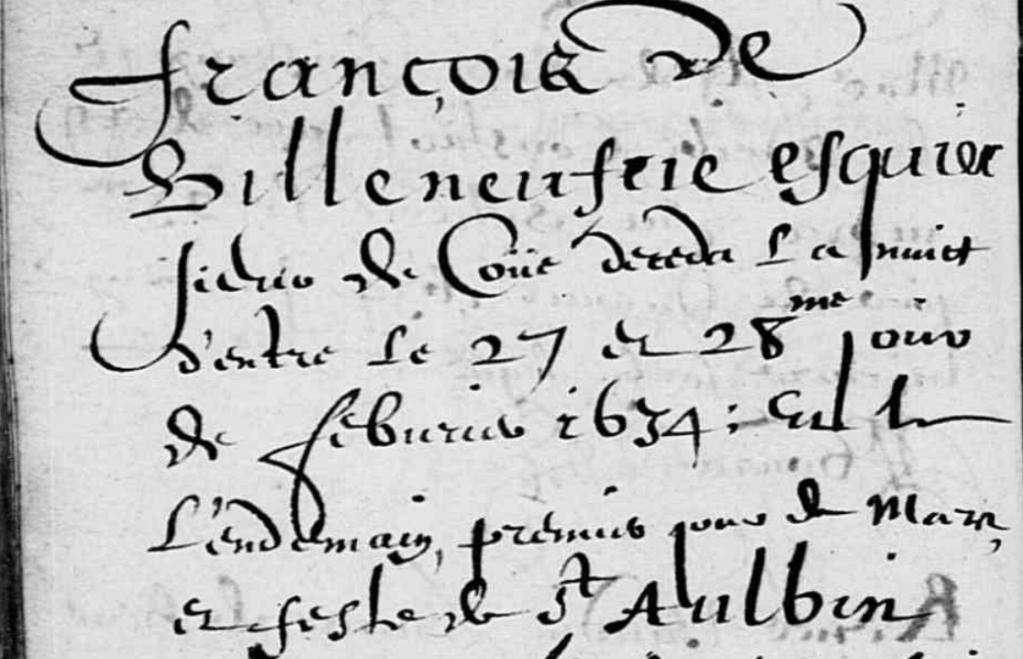 François de
Villeneufve esquier
sieur de Coüe deceda la nuict
d'entre le 27 et 28me jour
de febvrier 1634; Et le
L'endemain, premier jour de Mars,
et feste de St Aulbin